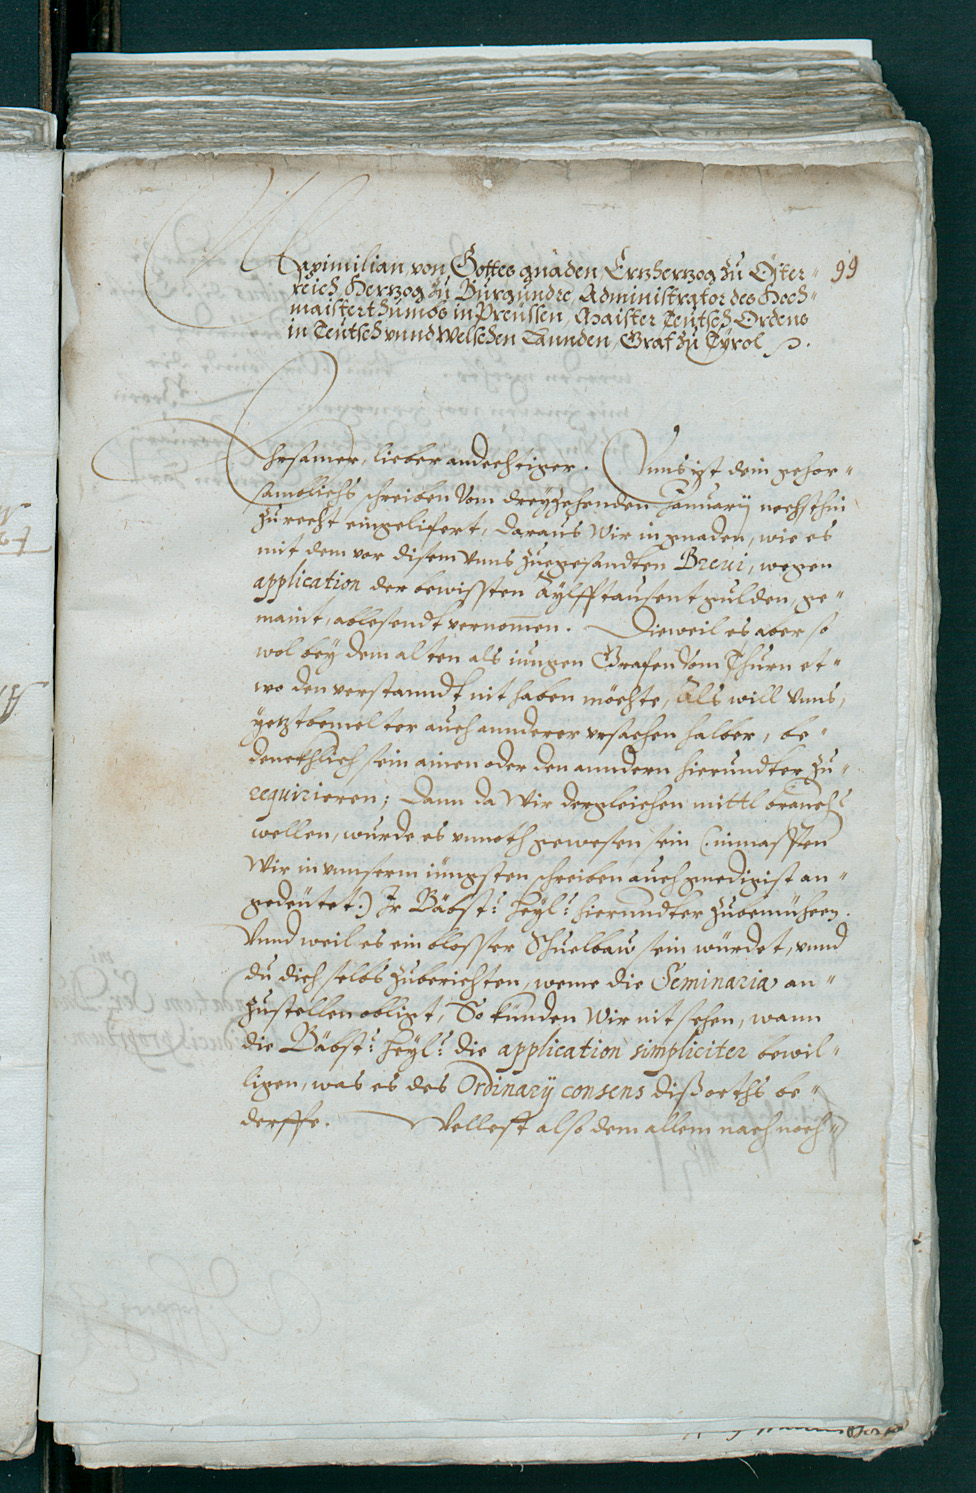 Maximilian von Gottes gnaden Ertzhertzog zu Öster-
99
reich, Hertzog zu Burgundt, Administrator des Hoch-
maisterthumbs in Preüssen, Maister Teutsch Ordens
in Teutsch vnnd Welschen Lannden, Graf zu Tyrol
Ehrsamer, lieber andechtiger. Vnns ist dein gehor-
samblichs schreiben vom dreyzehenden Januarÿ nechsthin
zurecht eingelifert, daraus Wir in gnaden, wie es
mit dem vor disem vnns zuegesandten Breui, wegen
application der bewissten Aylfftausent gulden, ge-
maint, ablesendt vernommen. Dieweil es aber so
wol bey dem alten als iungen Grafen vom Thurn et-
wo den verstanndt nit haben möchte, Als will vnns,
yetztbemelter auch annderer vrsachen halber, be-
denckhlich sein ainen oder den anndern hierundter zu-
requirieren; Dann da Wir dergleichen mittl brauchen
wellen, wurde es vnnoth gewesen sein (: inmassen
Wir in vnnserm iüngsten schreiben auch gnedigist an-
gedeütet :) Ir Bäbst: Heyl: hierundter zubemüheen.
Vnnd weil es ein blosser Schuelbaw sein würdet, vnnd
du dich selbs zuberichten, weme die Seminaria an-
zustellen obligt, So künden Wir nit sehen, wann
die Bäbst: Heyl: die application simpliciter bewil-
ligen, was es des Ordinarÿ consens dißorths be-
derffe. Wellest also dem allem nach noch-